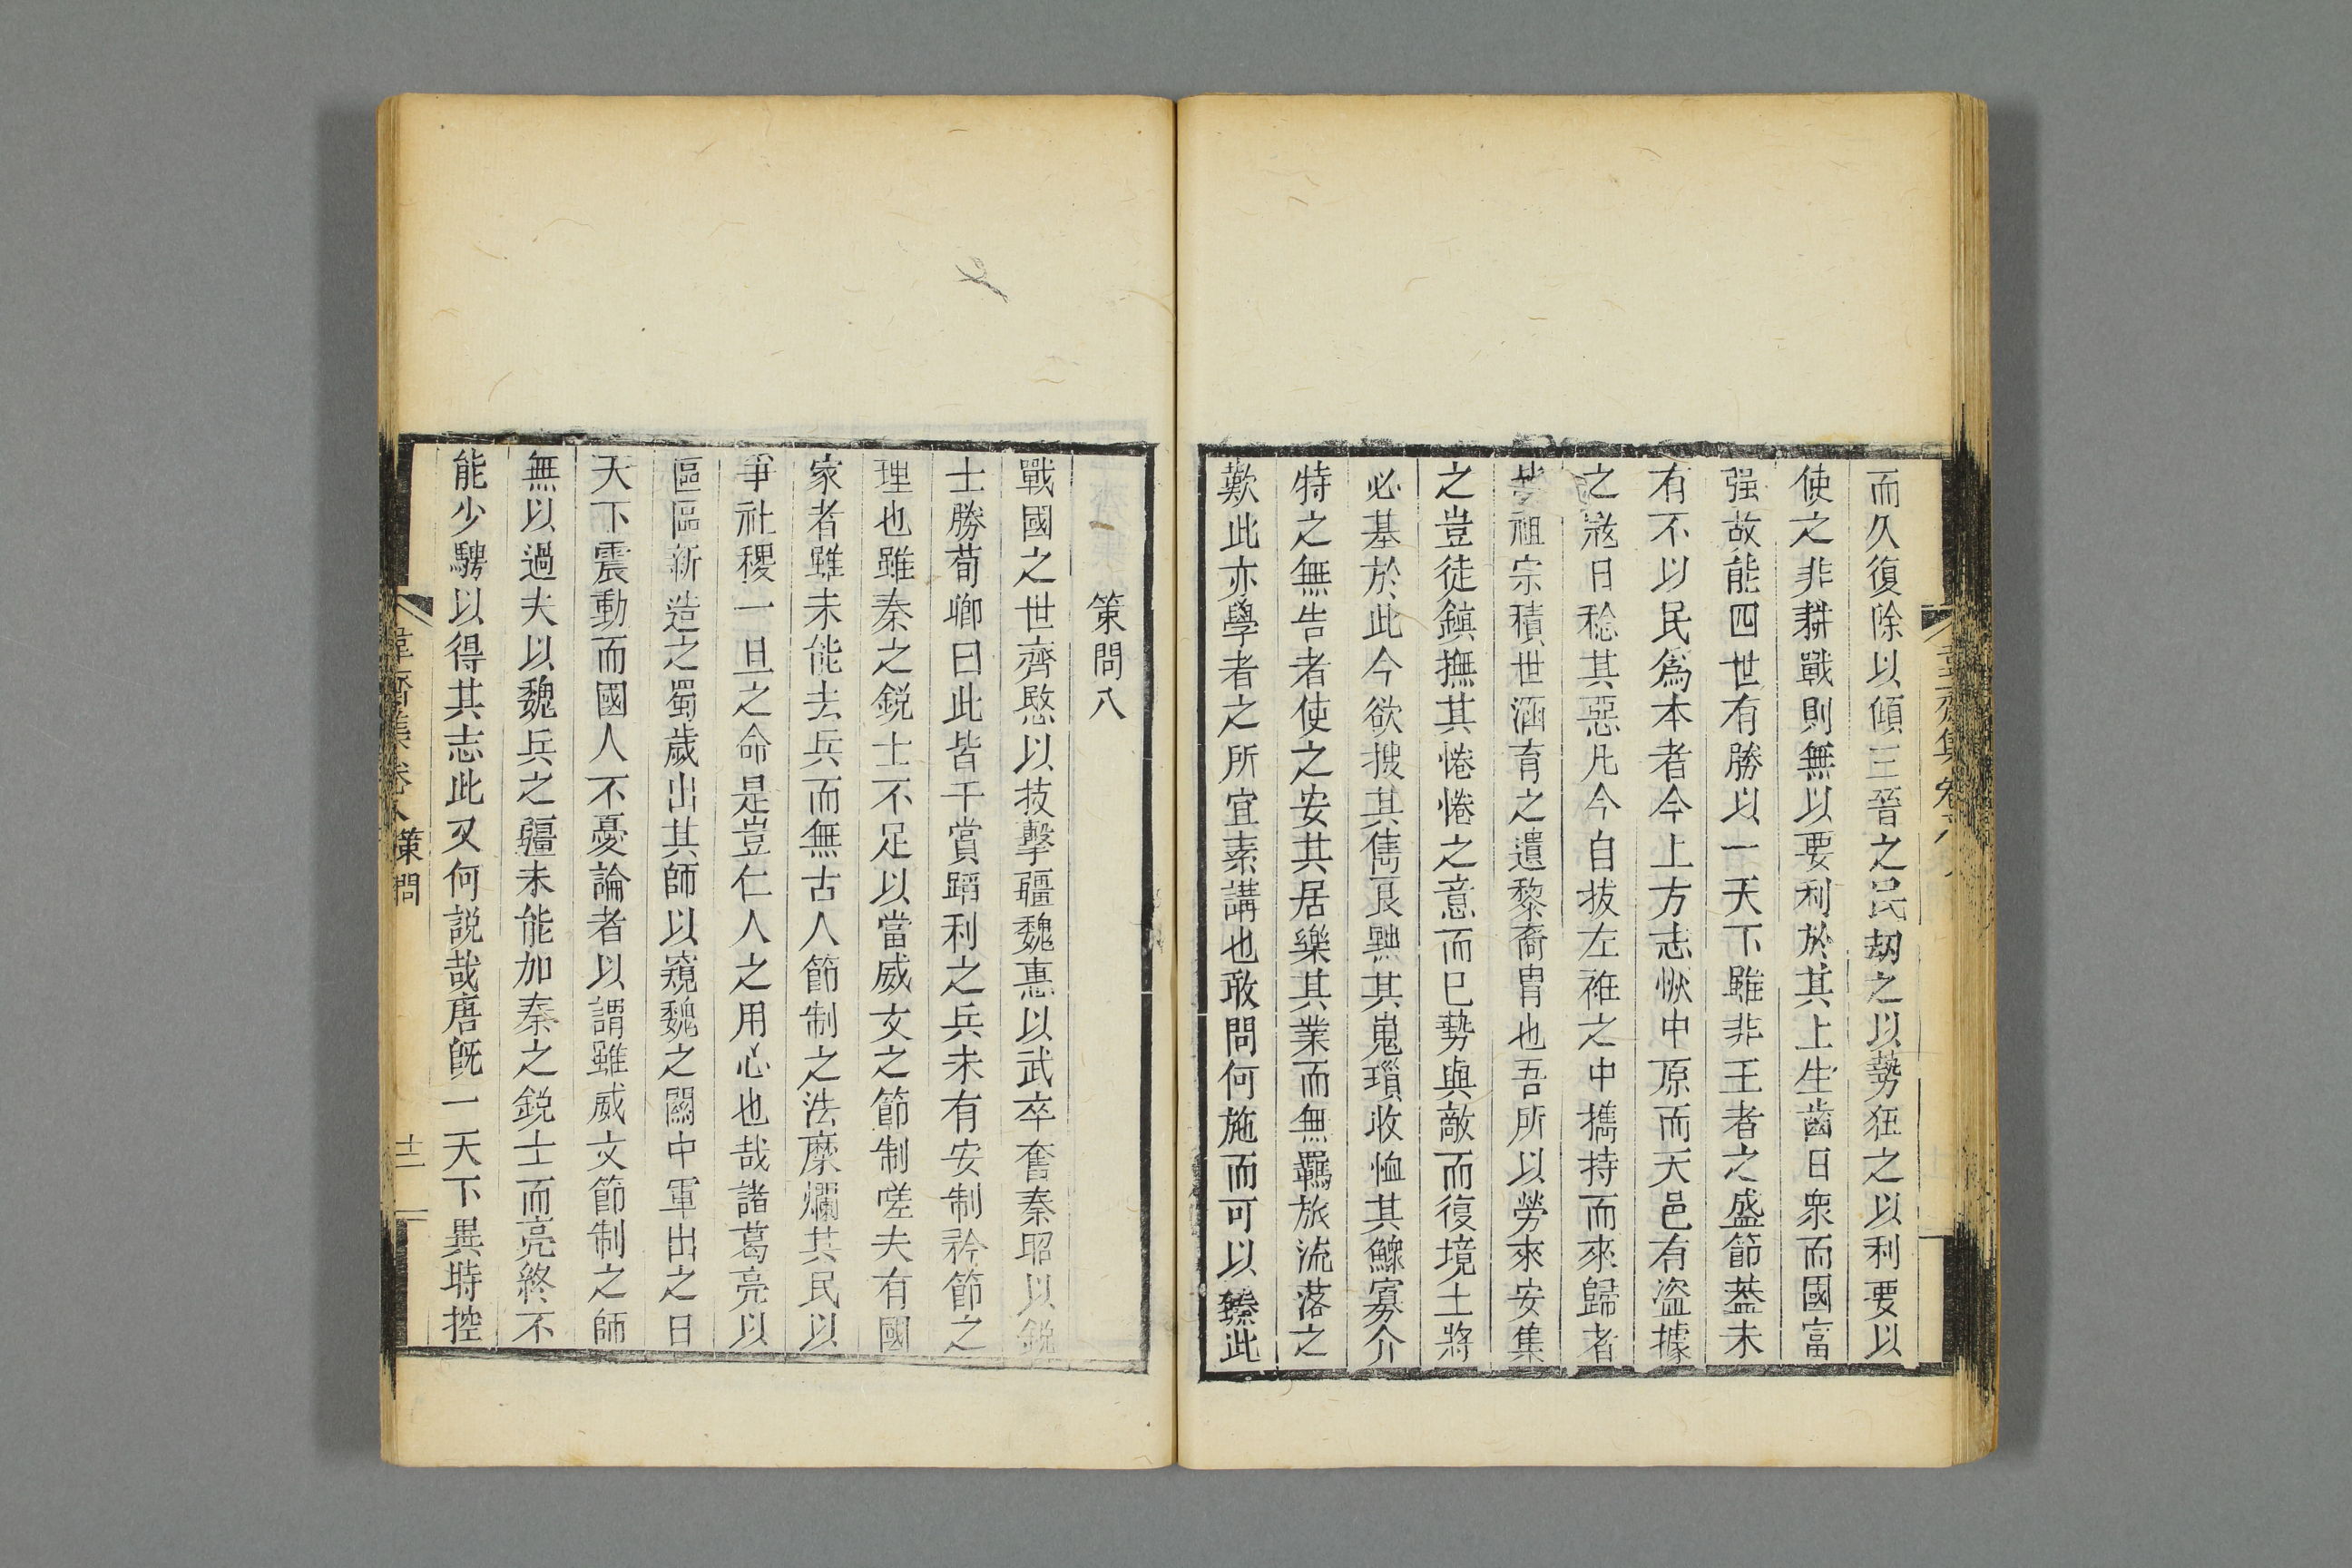 而久復除以傾三晉之民劫之以勢狃之以利要以
使之非耕戰則無以要利於其上生齒日衆而國富
强故能四世有勝以一天下雖非王者之盛節葢未
有不以民爲本者今上方志恢中原而天邑有盜據
之宼日稔其惡凡今自拔左袵之中擕持而來歸者
皆祖宗積世涵育之遺黎裔胄也吾所以勞來安集
之豈徒鎮撫其惓惓之意而巳勢與敵而復境土將
必基於此今欲搜其雋良黜其嵬瑣收恤其鰥寡介
特之無告者使之安其居樂其業而無羈旅流落之
歎此亦學者之所宜素講也敢問何施而可以臻此
策問八
戰國之世齊愍以技擊彊魏惠以武卒奮秦昭以鋭
士勝荀卿曰此皆干賞蹈利之兵未有安制矜節之
理也雖秦之鋭士不足以當威文之節制嗟夫有國
家者雖未能去兵而無古人節制之法糜爛其民以
爭社稷一旦之命是豈仁人之用心也哉諸葛亮以
區區新造之蜀歲出其師以窺魏之關中軍出之日
天下震動而國人不憂論者以謂雖威文節制之師
無以過夫以魏兵之彊未能加秦之鋭士而亮終不
能少騁以得其志此又何説哉唐旣一天下異時控
韋齋集卷八 策問 十二